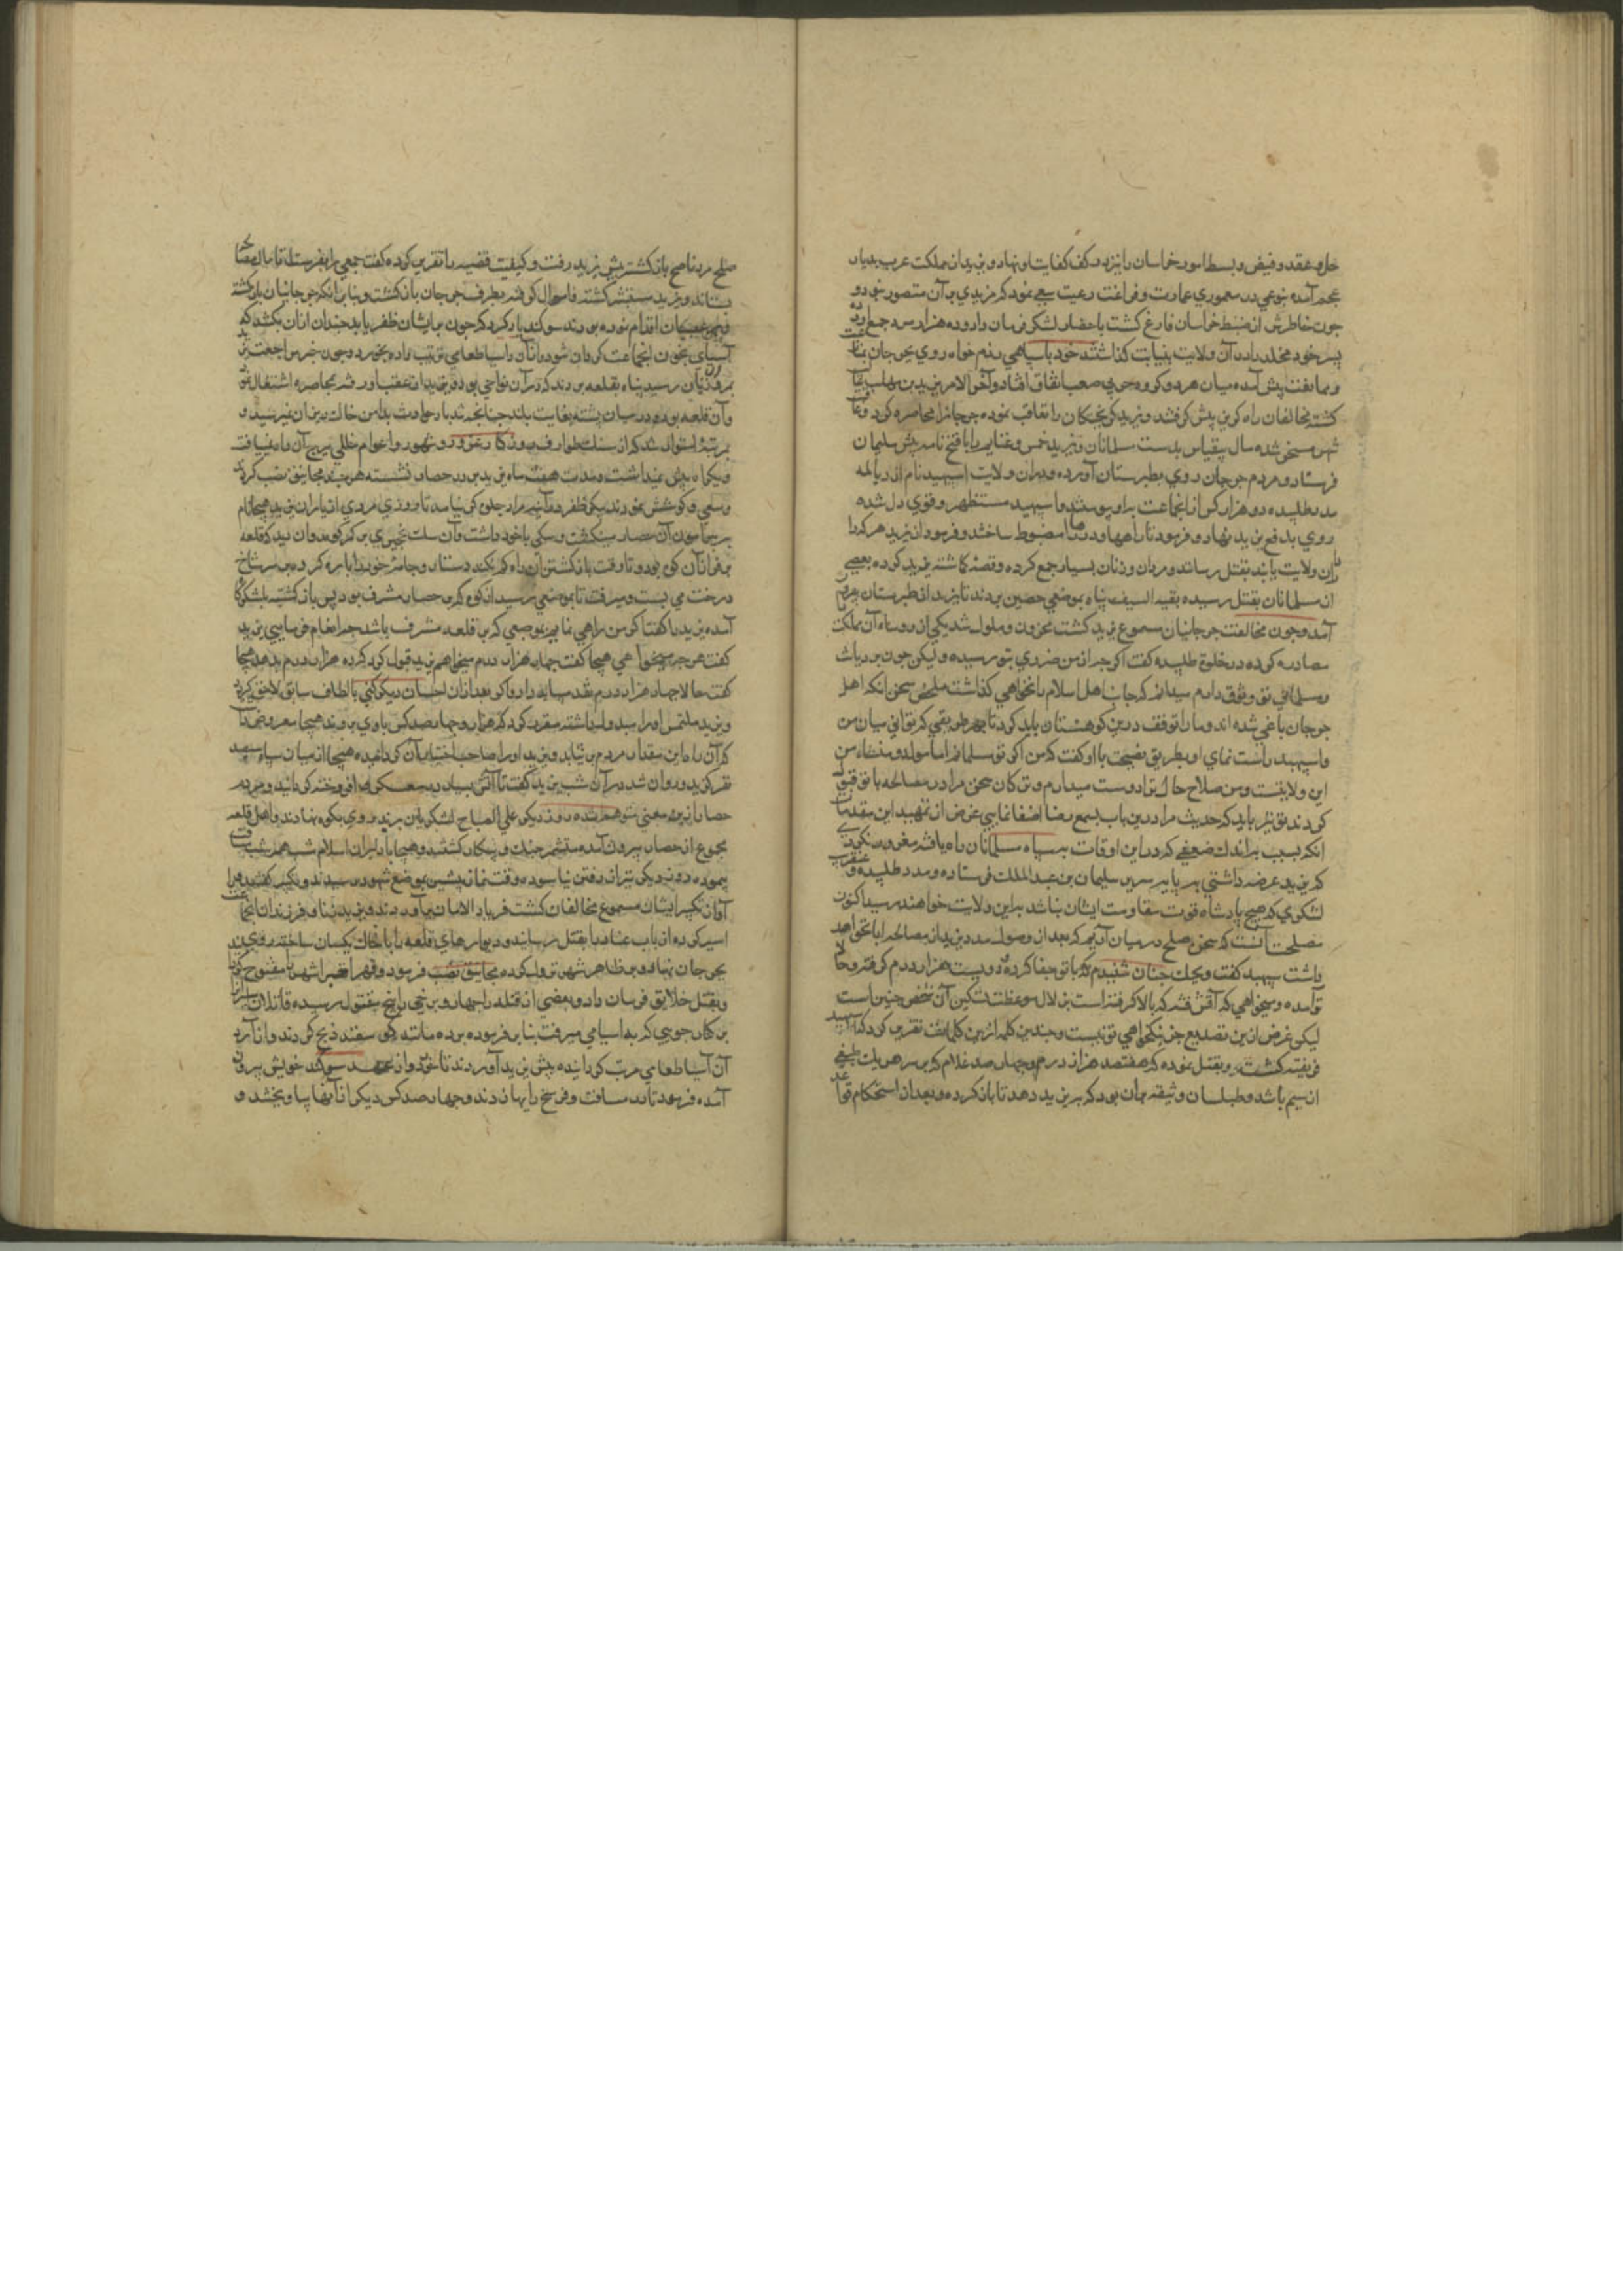 حل و عقد و قبض و بسط امور خراسان را نیز در کف کفایت او نهاد و یزید از مملکت عرب بدیار
عجم آمده بنوعی در معموری عمارت و فراغت رعیت سعی نمود که مزیدی بر آن متصور نبود و
جون خاطرش از ضبط خراسان فارغ کشت باحضار لشکر فرمان داد و ده هزار مرد جمع آورده
پسر خود مخلد را در آن ولایت بنیابت کذاشته خود با سپاهی رزم خواه روی بجرجان نهاد
و ممانعت پیش آمده میان هر دو کروه حربی صعب اتفاق افتاد و آخر الامر یزید بن مهلب غالب
کشته مخالفان راه کریز پیش کرفتند و یزید کریختکان را تعاقب نموده جرجان را محاصره کرد
شهر مسخر شده مال بیقیاس بدست مسلمانان و یزید خمس غنایم را با فتح نامه پیش سلیمان
فرستاد و مردم جرجان روی بطبرستان آورده و در آن ولایت اسپهبد نام از دیالمه
مدد طلبیده دو هزار کس از انجماعت براو پیوستند و اسپهبد مستظهر و قوی دل شده
روی بدفع یزید نهاد و فرمود تا راهها و دربندها مضبوط ساختند و فرمود از یزید هر کرا
در آن ولایت یابند بقتل رسانند و مردان و زنان بسیار جمع کرده و قصد کاشته یزید کرده بعضی
از مسلمانان بقتل رسیده بقیة السیف پناه بموضعی حصین بردند تا یزید از طبرستان
آمد و جون مخالفت جرجانیان مسموع یزید کشت محزون و ملول شد یکی از رؤساء آن مملکت
مصادره کرده در خلوة طلبیده کفت اکر جه از من ضرری بتو رسیده و لیکن جون بر دیانت
و مسلمانی تو وثوق دارم میدانم که جانب اهل اسلام را نخواهی کذاشت ملخص سخن آنکه اهل
جرجان یاغی شده اند و ما را توقف درین کوهستان باید کرد تا بهر طریقی که توانی میان من
و اسپهبد راست نمای او بطریق نصیحت با او کفت که من اکر جه مسلمانم اما مولد و منشاء من
این ولایتست و من صلاح حال ترا دوست میدارم و ترکان سخن مرا در مصالحه با تو قبول
کردند تو نیز باید که حدیث مرا درین باب بسمع رضا اصغا نمایی غرض از تمهید این مقدمات
آنکه بسبب براندک ضعیفی که در این اوقات بسپاه مسلمانان راه یافته مغرور نکردی
که یزید عرضه داشتی بر پایه سریر سلیمان بن عبدالملک فرستاده و مدد طلبیده و عنقریب
لشکری که هیچ پادشاه قوت مقاومت ایشان نباشد براین ولایت خواهند رسید اکنون
مصلحت آنست که سخن صلح در میان آریم که بعد از وصول مدد یزید از مصالحه ابا خواهد
داشت سپهبد کفت ویحک جنان شنیدم که با تو جفا کرده و دویست هزار درم کرفته و حالا
تو آمده و میخواهی که آتش فتنه که بالا کرفته است بزلال موعظت تسکین آن شخص جنین است
لیکن غرض از این تصدیع جز نیکخواهی تو نیست و جندین کلمه ازین کلمات تقریر کرد که اسپهبد
فریفته کشت و بقتل نموده که هفتصد هزار درم و جهار صد غلام که بر سر هر یک طبقی
از سیم باشد و طیلسان وثیقه بران بود که بیزید دهد تا باز کردد و بعد از استحکام قواعد
صلح مرد ناصح باز کشته پیش یزید رفت و کیفیت قضیه را تقریر کرده کفت جمعی را بفرست تا مال
بستاند و یزید مستبشر کشته فی الحال کرفته بطرف جرجان باز کشت و بنابر آنکه جرجانیان
اقدام نموده بودند سوکند یاد کرد که جون بر ایشان ظفر یابد جندان از آن بکشد که
آسیای بخون انجماعت کردان شود و از آن آسیا طعامی ترتیب داده بخورد و جون خبر مراجعت یزید
رسید پناه بقلعه بردند که در آن نواحی بود و یزید از عقب ایشان رفته بمحاصره اشتغال نمود
و آن قلعه بود در میان پشته بغایت بلند جنانجه تند باد حوادث بدامن خاک ریز آن نمیرسید و
بمرتبهٔ استوار شد که از سنک طوارق روزکار بمرور دهور و اعوام خللی ببرج آن راه نمییافت
و یک راه بیش نداشت و مدت هفت ماه یزید بر در حصار نشسته هر جند مجانیق نصب کردند
و سعی و کوشش نمودند پیکر ظفر در آینهٔ مراد جلوه کر نیامد تا روزی مردی از یاران یزید هیجا نام
پیرامون آن حصار میکشت و سکی با خود داشت و آن سک نخجیری بر کمر کوه دوان دید که قلعه
بر فراز آن کوه بود و تا وقت بازکشتن آن راه کم نکند دستار و جامهٔ خود را پاره کرده بر سر شاخ
درخت می بست و میرفت تا بموضعی رسید از کوه که بر حصار مشرف بود پس باز کشته بلشکرکاه
آمده یزید را کفت اکر من راهی نمایم بموضعی که بر قلعه مشرف باشد جه انعام فرمایی یزید
کفت هر جه میخواهی هیجا کفت جهار هزار درم میخواهم یزید قبول کرد که ده هزار درم بدهد هیجا
کفت حالا جهار هزار درم نقد میباید داد و اکر بعد از آن احسان دیکر کنی با الطاف سابق لاحق کردد
و یزید ملتمس او را مبذول داشته مقرر کرد که هزار و جهار صد کس با وی بروند هیجا معروض داشت
که آن راه این مقدار مردم بر نتابد و یزید او را صاحب اختیار آن کردانیده هیجا از میان سپاه سیصد
نفر کزید و روان شد در آن شب یزید کفت تا آتش بسیار در معسکر افروخته کردانید و مردم
حصار ازین معنی متوهم شده روز دیکر علی الصباح لشکریان یزید روی بکوه نهادند و اهل قلعه
بجموع از حصار بیرون آمده مستشمر جنک و پیکار کشتند و هیجا با دلیران اسلام شب همه شب
پیموده روز دیکر نیز از رفتن نیاسوده وقت نماز پیشین بموضع مشهود رسیدند و تکبیر کفتند
آواز تکبیر ایشان مسموع مخالفان کشت فریاد الامان برآوردند و یزید زنان و فرزندان
اسیر کرده ارباب عناد را بقتل رسانید و دیوارهای قلعه را با خاک یکسان ساخته روی
بجرجان نهاد و بر ظاهر شهر نزول کرده مجانیق نصب فرمود و قهرا قسرا شهر را مفتوح
و بقتل خلایق فرمان داد و بعضی از قتله را جهار و برخی را پنج مقتول رسیده قاتلان
بر کنار جویی که به آسیای میرفت بنا بر فرموده برده مانند کوسفند ذبح کردند و از آرد
آن آسیا طعامی مرتب کردانیده پیش یزید آوردند تا خورد و از عهد سوکند خویش بیرون
آمده فرمود تا در مسافت دو فرسخ دارها زدند و جهار صد کس دیکر از آنها بیاویختند و